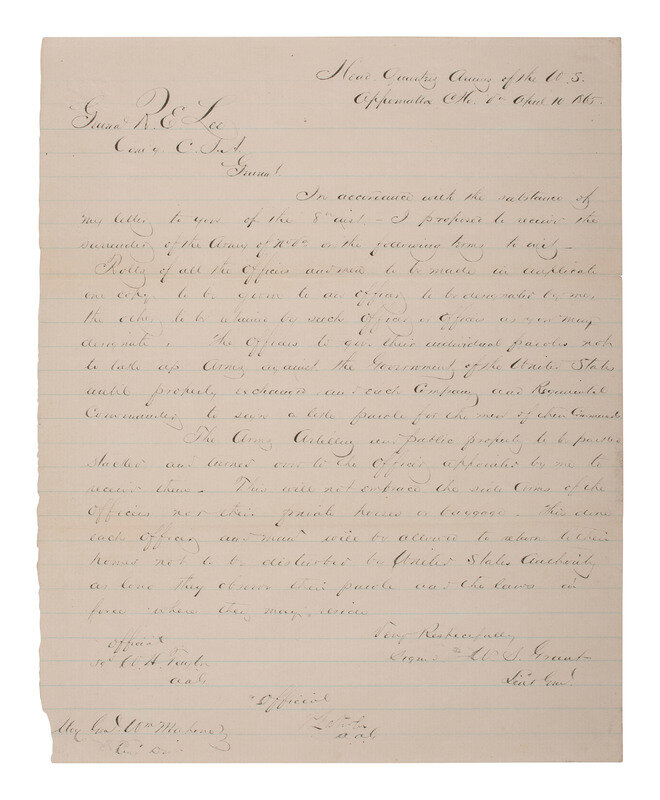 Head Quarters Army of the U. S.
Appomattox C. Ho. Va April 10 1865.
Genl R. E. Lee
Comg C. S. A.
Genl.
In accordance with the substance of
my letter to you of the 8th inst. – I propose to receive the
surrender of the Army of N. Va on the following terms to wit –
Rolls of all the Officers and men to be made in duplicate
one copy to be given to an officer to be designated by me,
the other to be retained by such officer or officers as you may
designate. The Officers to give their individual paroles not
to take up Arms against the Government of the United States
until properly exchanged and each Company and Regimental
Commander to sign a like parole for the men of their Commands
The Arms Artillery and public property to be parked
stacked and turned over to the Officer appointed by me to
receive them. This will not embrace the side Arms of the
Officers nor their private horses or baggage. This done
each Officer and man will be allowed to return to their
homes not to be disturbed by United States Authority
as long they observe their parole and the laws in
force where they may reside
Very Respectfully
Signed U. S. Grant
Lieut Genl.
Official
W. H. Taylor
a a G
Official
a. a. G
Maj Genl Wm Mahone